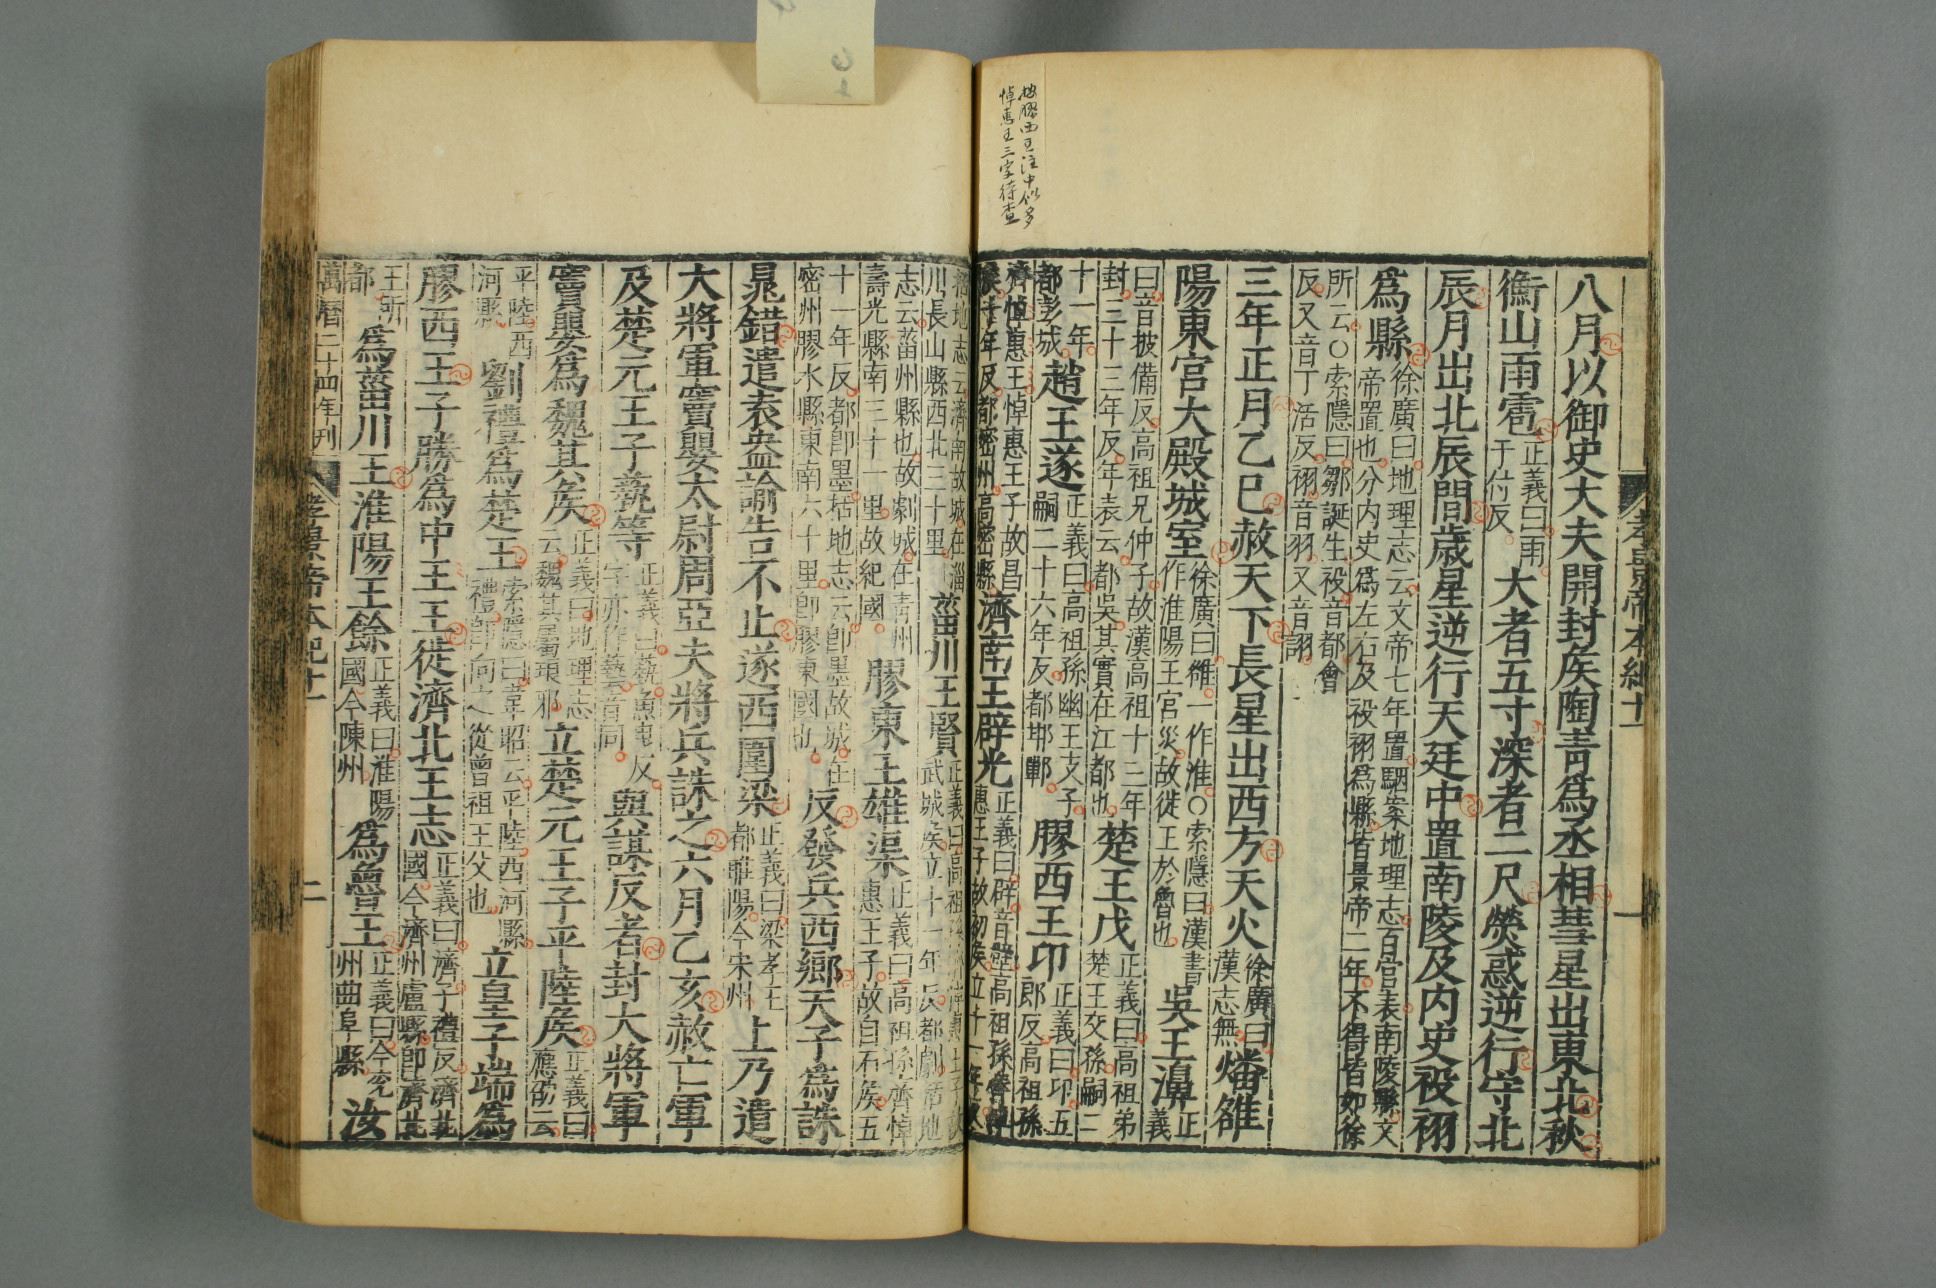 按膠西王注中似多
悼惠王三字待查
孝景帝本紀十一　一
八月以御史大夫開封矦陶青爲丞相彗星出東北秋
衡山雨雹正義曰雨于付反大者五寸深者二尺熒惑逆行守北
辰月出北辰間歲星逆行天廷中置南陵及内史祋祤
爲縣徐廣曰地理志云文帝七年置駰案地理志百官表南陵縣文帝置也分内史爲左右及祋祤爲縣皆景帝二年不得皆如徐
所云○索隱曰鄒誕生祋音都會反又音丁活反祤音羽又音詡
三年正月乙巳赦天下長星出西方天火徐廣曰漢志無燔雒
陽東宫大殿城室徐廣曰雒一作淮○索隱曰漢書作淮陽王宫災故徙王於魯也吳王濞正義
曰音披備反高祖兄仲子故漢高祖十二年封三十三年反年表云都吳其實在江都也楚王戊正義曰高祖弟楚王交孫嗣二
十一年都彭城趙王遂正義曰高祖孫幽王友子嗣二十六年反都邯鄲膠西王卬正義曰卬五郎反高祖孫
齊悼惠王悼惠王子故昌矦十年反都密州高密縣濟南王辟光正義曰辟音壁高祖孫齊悼惠王子故初矦立十一年反
括地志云濟南故城在淄川長山縣西北三十里菑川王賢正義曰高祖孫齊悼惠王子故武城矦立十一年反都劇括地
志云菑州縣也故劇城在青州壽光縣南三十一里故紀國膠東王雄渠正義曰高祖孫齊悼惠王子故白石矦五
十一年反都卽墨括地志云卽墨故城在密州膠水縣東南六十里卽膠東國也反發兵西鄉天子爲誅
晁錯遣袁盎諭告不止遂西圍梁正義曰梁孝王都睢陽今宋州上乃遣
大將軍竇嬰太尉周亞夫將兵誅之六月乙亥赦亡軍
及楚元王子蓺等正義曰蓺魚曳反字亦作藝音同與謀反者封大將軍
竇嬰爲魏其矦正義曰地理志云魏其屬琅邪立楚元王子平陸矦正義曰應劭云
平陸西河縣劉禮爲楚王索隱曰韋昭云平陸西河縣禮卽向之從曾祖王父也立皇子端爲
膠西王子勝爲中王王徙濟北王志正義曰濟子禮反濟北國今濟州盧縣卽濟北
王所都爲菑川王淮陽王餘正義曰淮陽國今陳州爲魯王正義曰今兖州曲阜縣汝
萬曆二十四年刊　孝景帝本紀十一　二